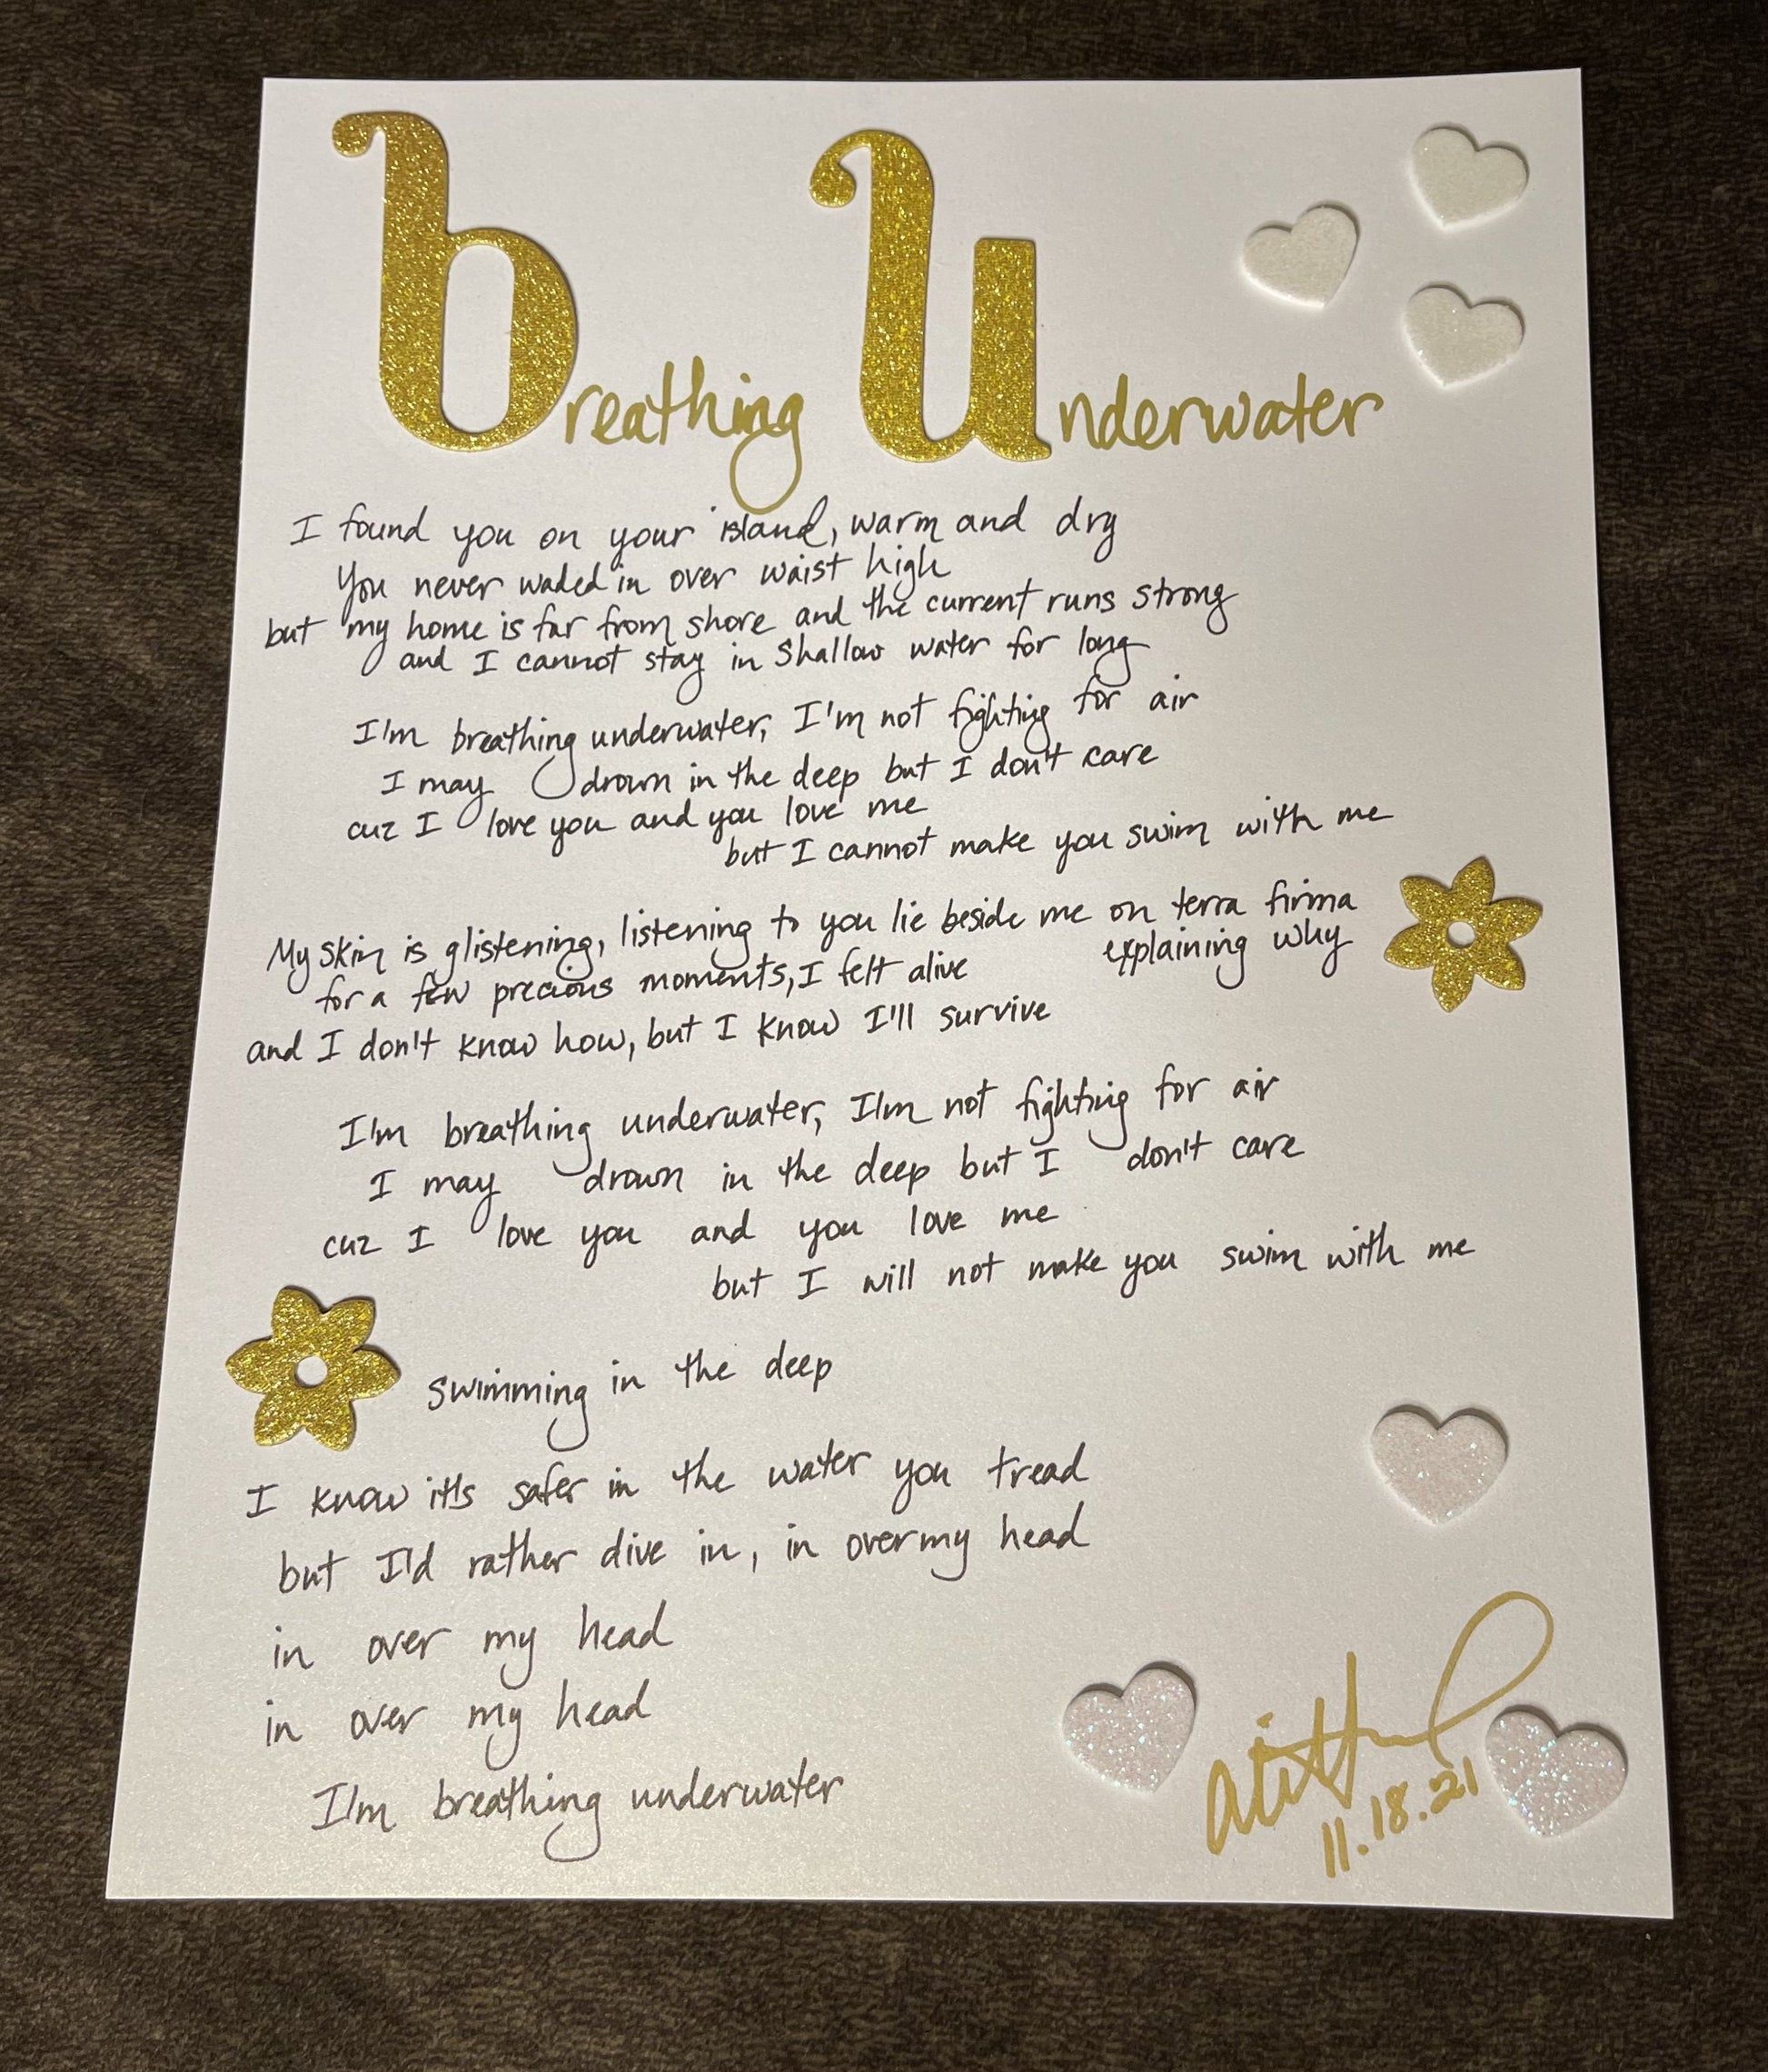 breathing Underwater
I found you on your island, warm and dry
You never waded in over waist high
but my home is far from shore and the current runs strong
and I cannot stay in shallow water for long
I'm breathing underwater, I'm not fighting for air
I may drown in the deep but I don't care
cuz I love you and you love me
but I cannot make you swim with me
My skin is glistening, listening to you lie beside me on terra firma
explaining why
for a few precious moments, I felt alive
and I don't know how, but I know I'll survive
I'm breathing underwater, I'm not fighting for air
I may drown in the deep but I don't care
cuz I love you and you love me
but I will not make you swim with me
swimming in the deep
I know it's safer in the water you tread
but I'd rather dive in, in over my head
in over my head
in over my head
I'm breathing underwater
11.18.21